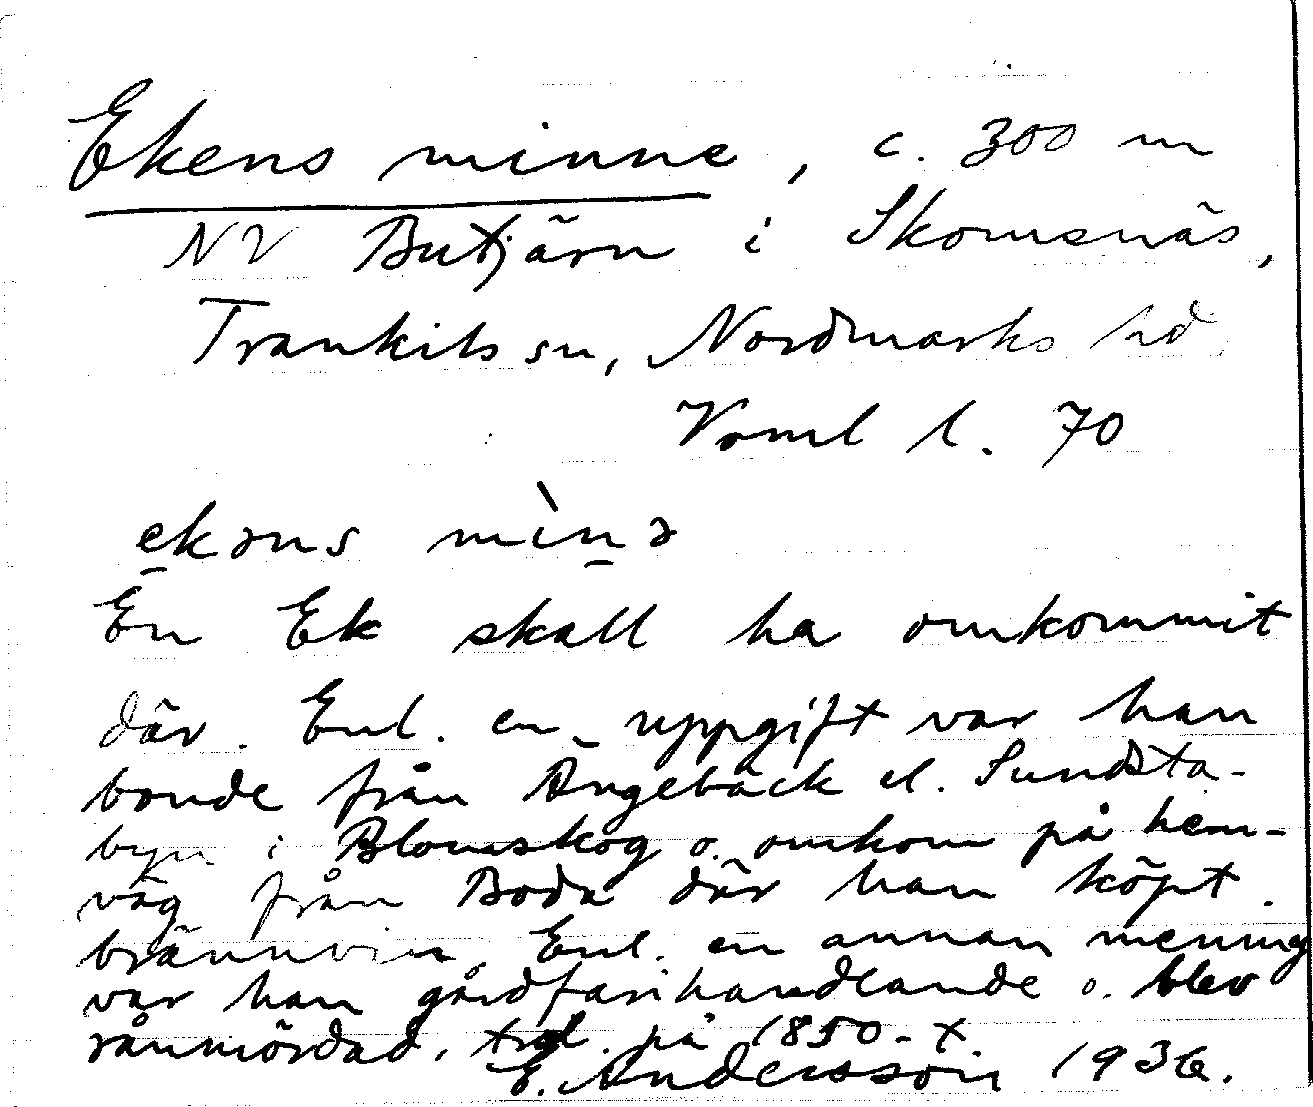 Ekens minne, c. 300 m
NV Butjärn i Skomsnäs,
Trankils sn, Nordmarks hd
Värml l. 70
ekəns mìnə
En Ek skall ha omkommit
där. Enl. en uppgift var han
bonde från Ängebäck el. Sundsta-
byn i Blomskog o. omkom på hem-
väg från Boda där han köpt
brännvin. Enl. en annan mening
var han gårdfarihandlande o. blev
rånmördad, trol. på 1850-t.
E. Andersson 1936.